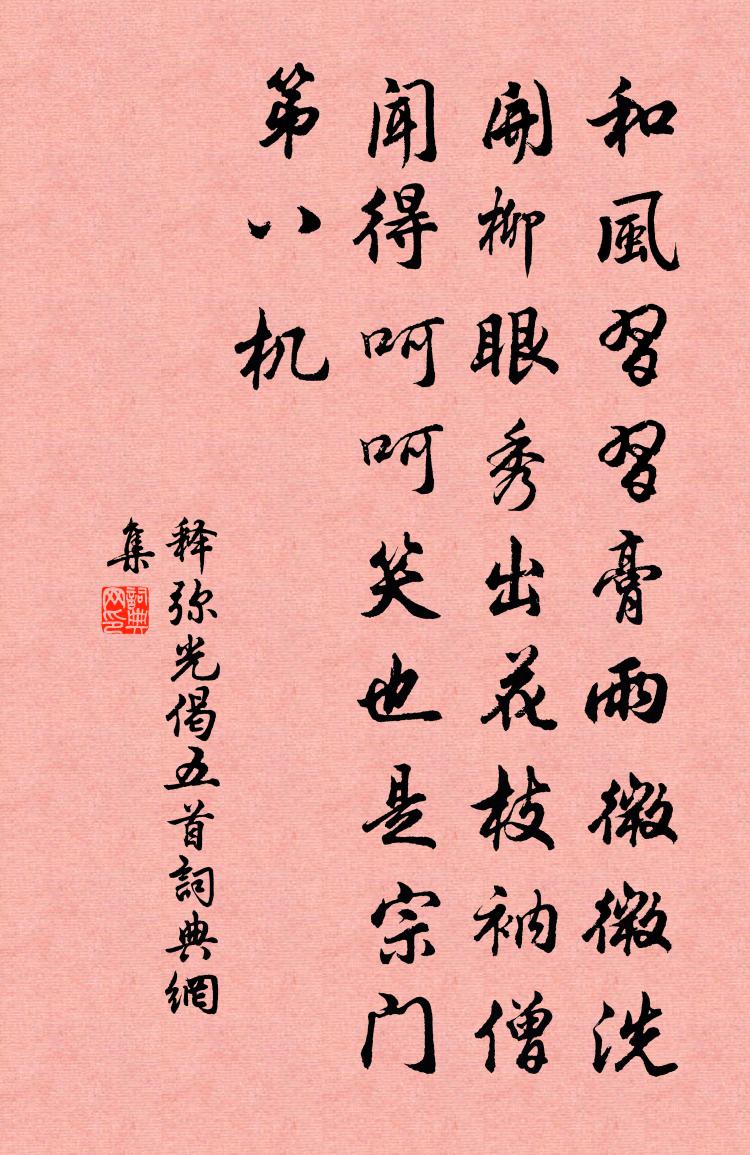 和風習習膏雨微微洗
開柳眼秀出花枝衲僧
聞得呵呵笑也是宗门
第八机
释弥光偈五首詞典網
集
詞典
网印